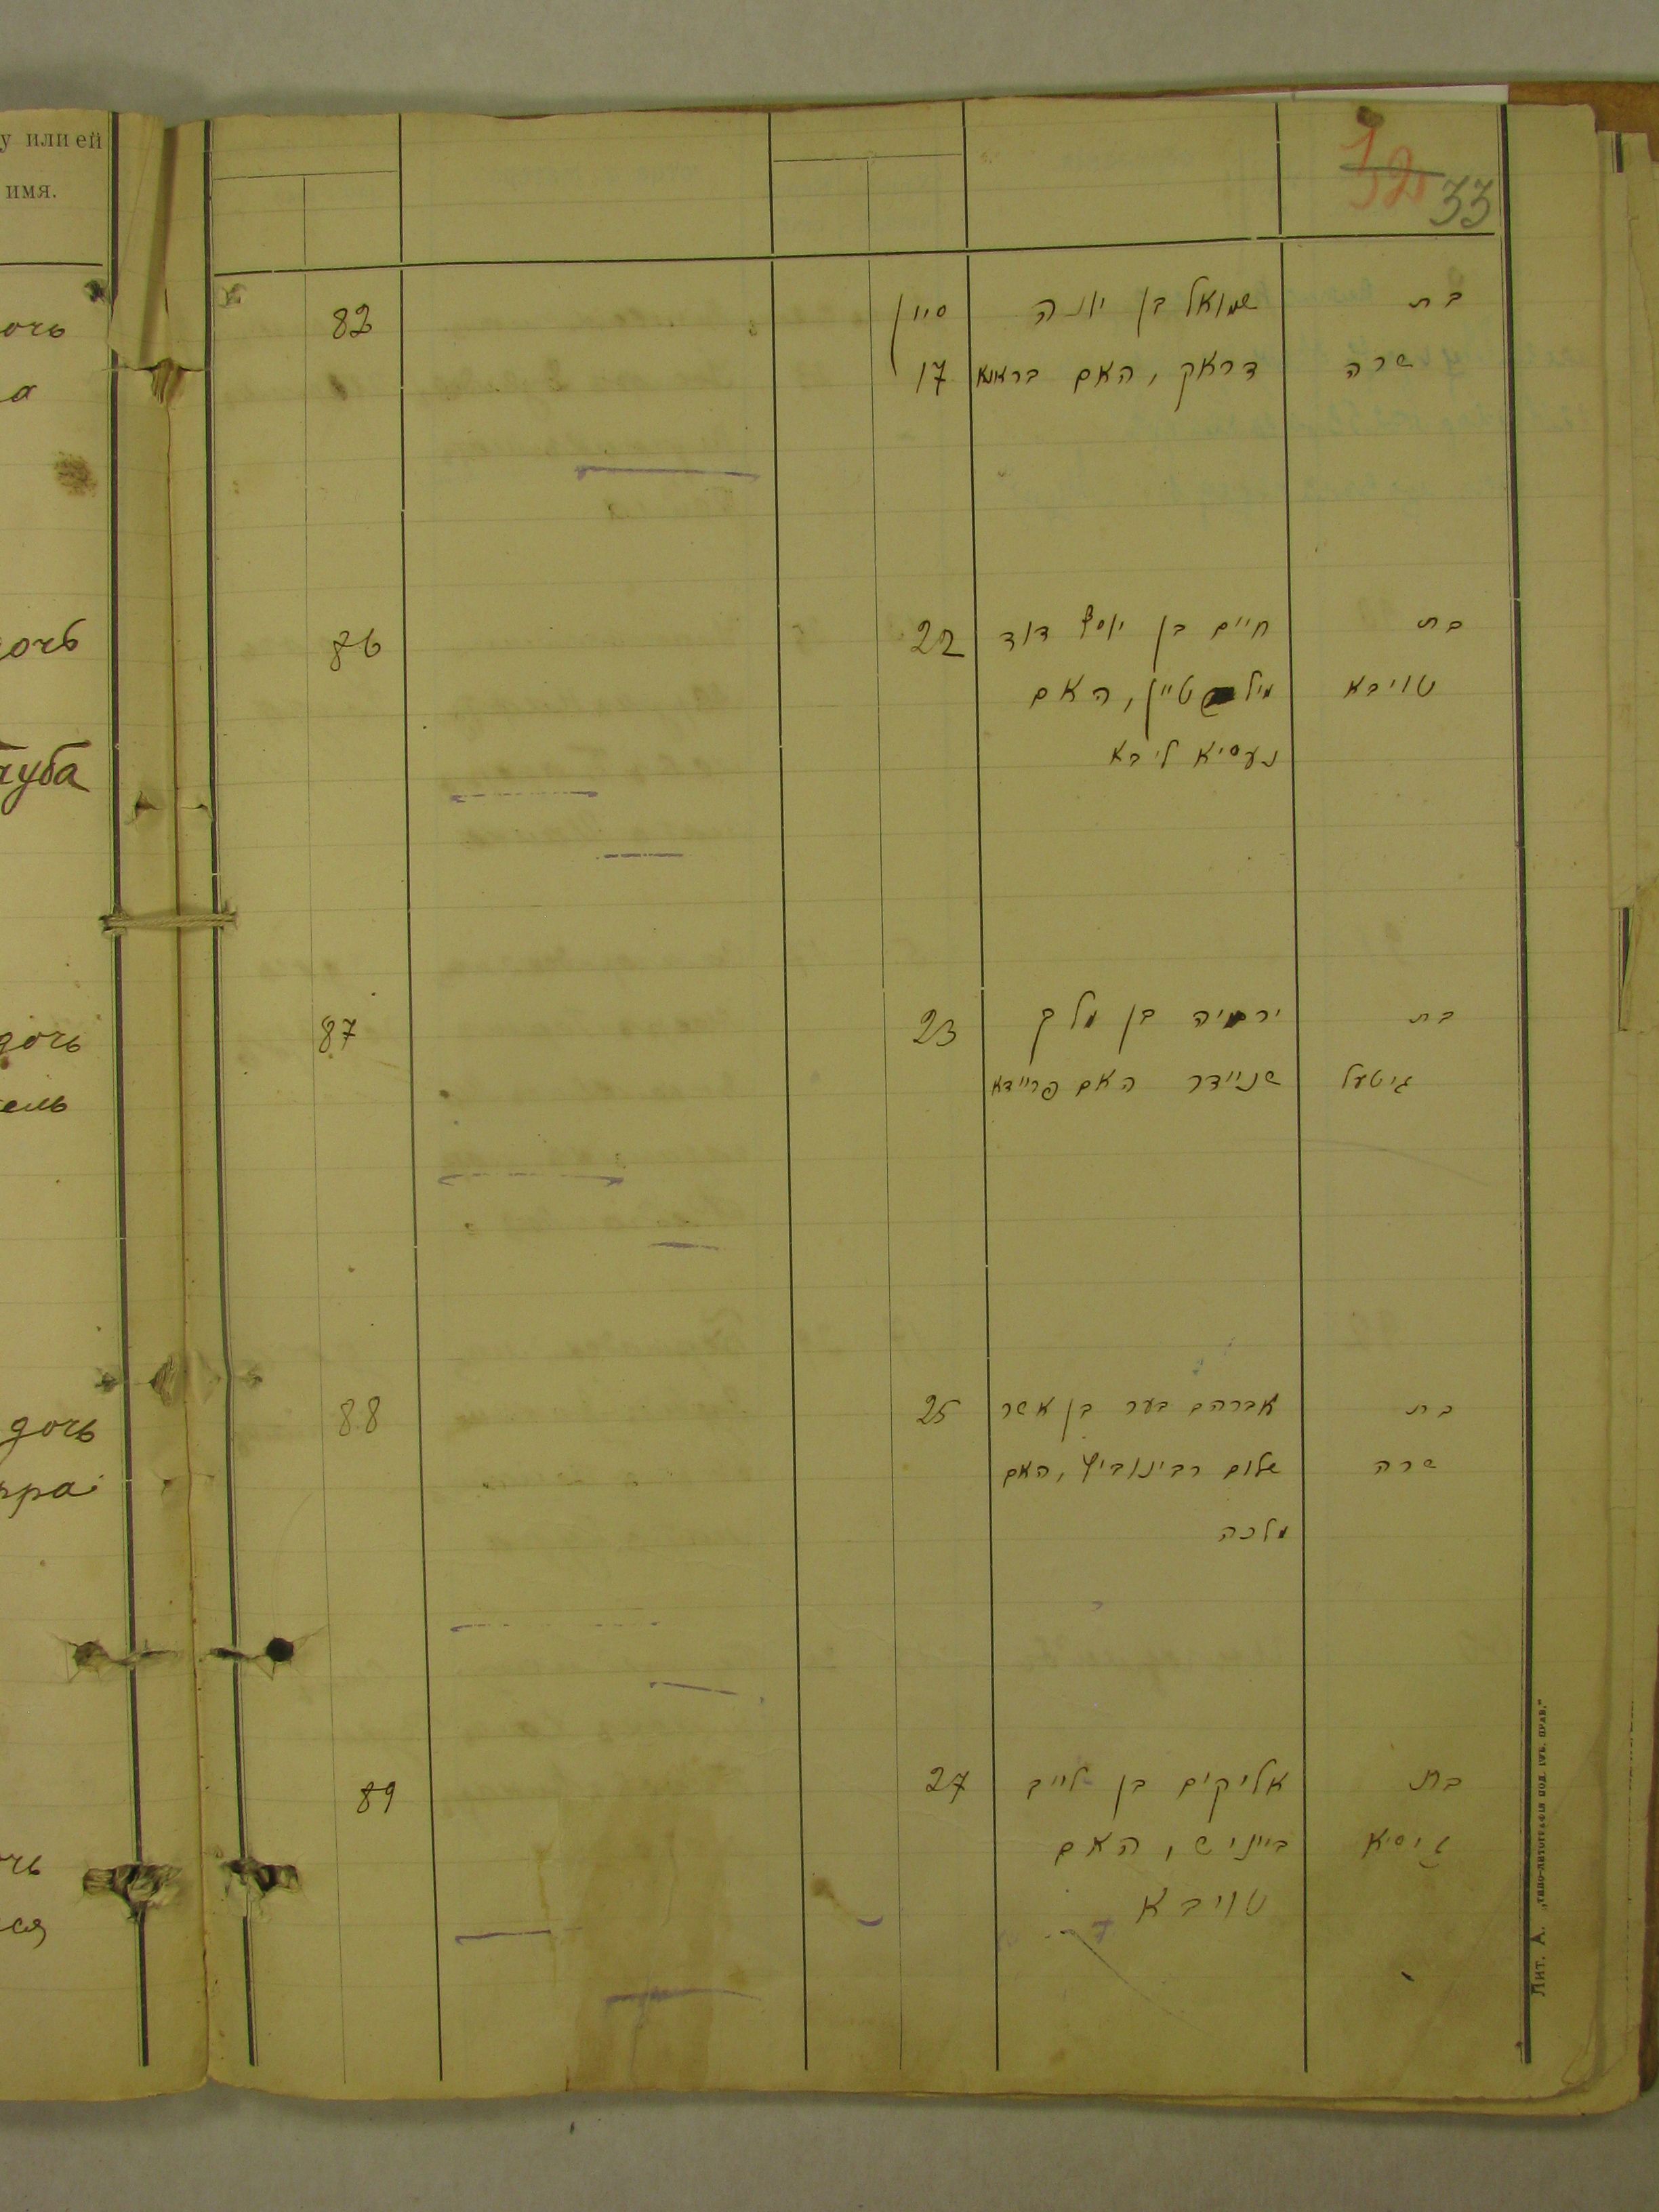 у или ей
имя.
32 33
очь
а
82
סיון
17
שמואל בן יונה
דראק, האם בראנא
בת
שרה
очь
86
22
חיים בן יוסף דוד
טיין, האם
נעסיא ליבא
בת
טויבא
дочь
ель
87
23
ירמיה בן מלך
שניידר האם פריידא
בת
גיטעל
дочь
рра
88
25
אברהם בער בן אשר
שלום רבינוביץ, האם
מלכה
בת
שרה
чь
ся
89
27
אליקים בן לייב
בייניש, האם
טויבא
בת
גיסיא
Лит. А.